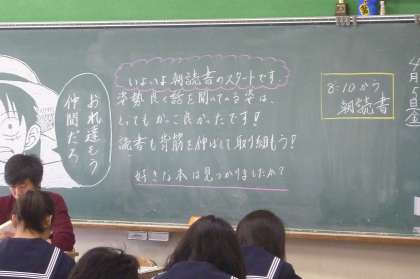 いよいよ朝読書のスタートです。
姿勢良く話を聞いている姿は、
とってもかっこ良かったです!
読書も背筋を伸ばして取り組もう!
好きな本は見つかりましたか?
おれ達もう
仲間だろ
8:10から
朝読書
4月5日金